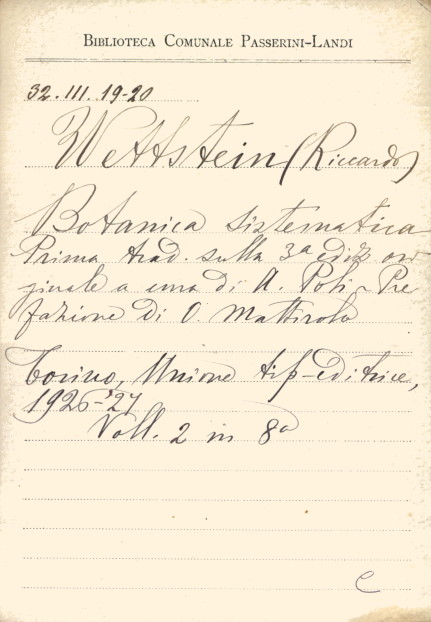 BIBLIOTECA COMUNALE PASSERINI-LANDI
32. III. 19-20
Wettstein (Riccardo)
Botanica sistematica
Prima trad. sulla 3a ediz. ori
ginale a cura di A. Poli - Pre
fazione di O. Mattirolo
Torino, Unione tip-editrice,
1926-'27
Voll. 2 in 8o
C